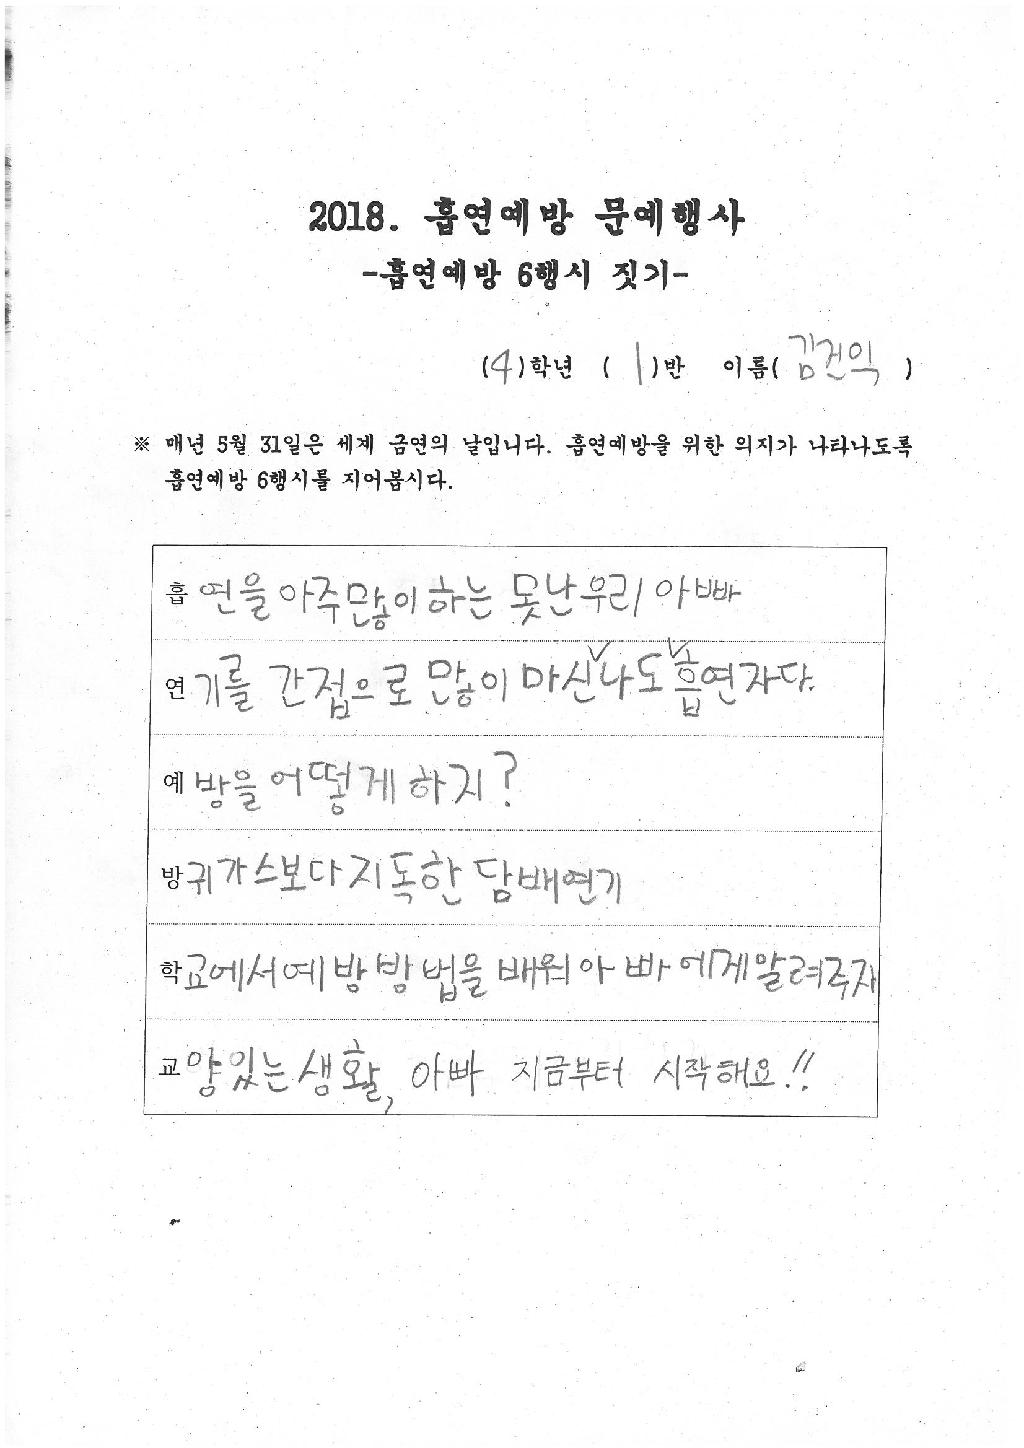 2018. 흡연예방 문예행사
-흡연예방 6행시 짓기-
(4)학년 (1)반 이름(김건익)
※ 매년 5월 31일은 세계 금연의 날입니다. 흡연예방을 위한 의지가 나타나도록
흡연예방 6행시를 지어봅시다.
흡연을 아주많이 하는 못난우리 아빠
연기를 간접으로 많이 마신∨나도∨흡연자다.
예방을 어떻게 하지?
방귀가스보다지독한 담배연기
학교에서예방방법을 배워아빠에게알려주자
교양있는생활, 아빠 지금부터 시작해요!!